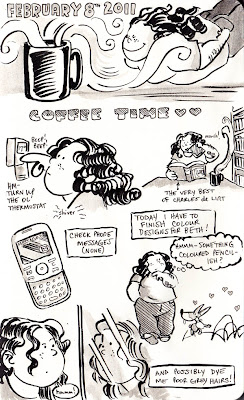 FEBRUARY 8TH 2011
COFFEE TIME ♥♥
BEEP!
BEEP!
HM-
TURN UP
THE OL'
THERMOSTAT
shiver
THE VERY BEST
OF CHARLES de LINT
CHECK PHONE
MESSAGES
(NONE)
TODAY I HAVE TO
FINISH COLOUR
DESIGNS FOR BETH!
HMMM-SOMETHING
COLOURED PENCIL-
ISH?
AND POSSIBLY DYE
ME POOR GREY HAIRS!